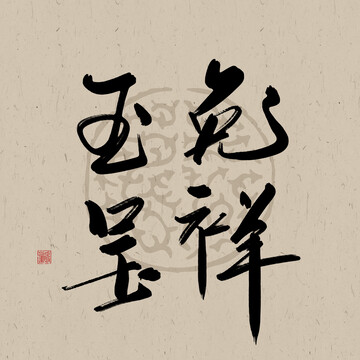 玉兔
呈祥